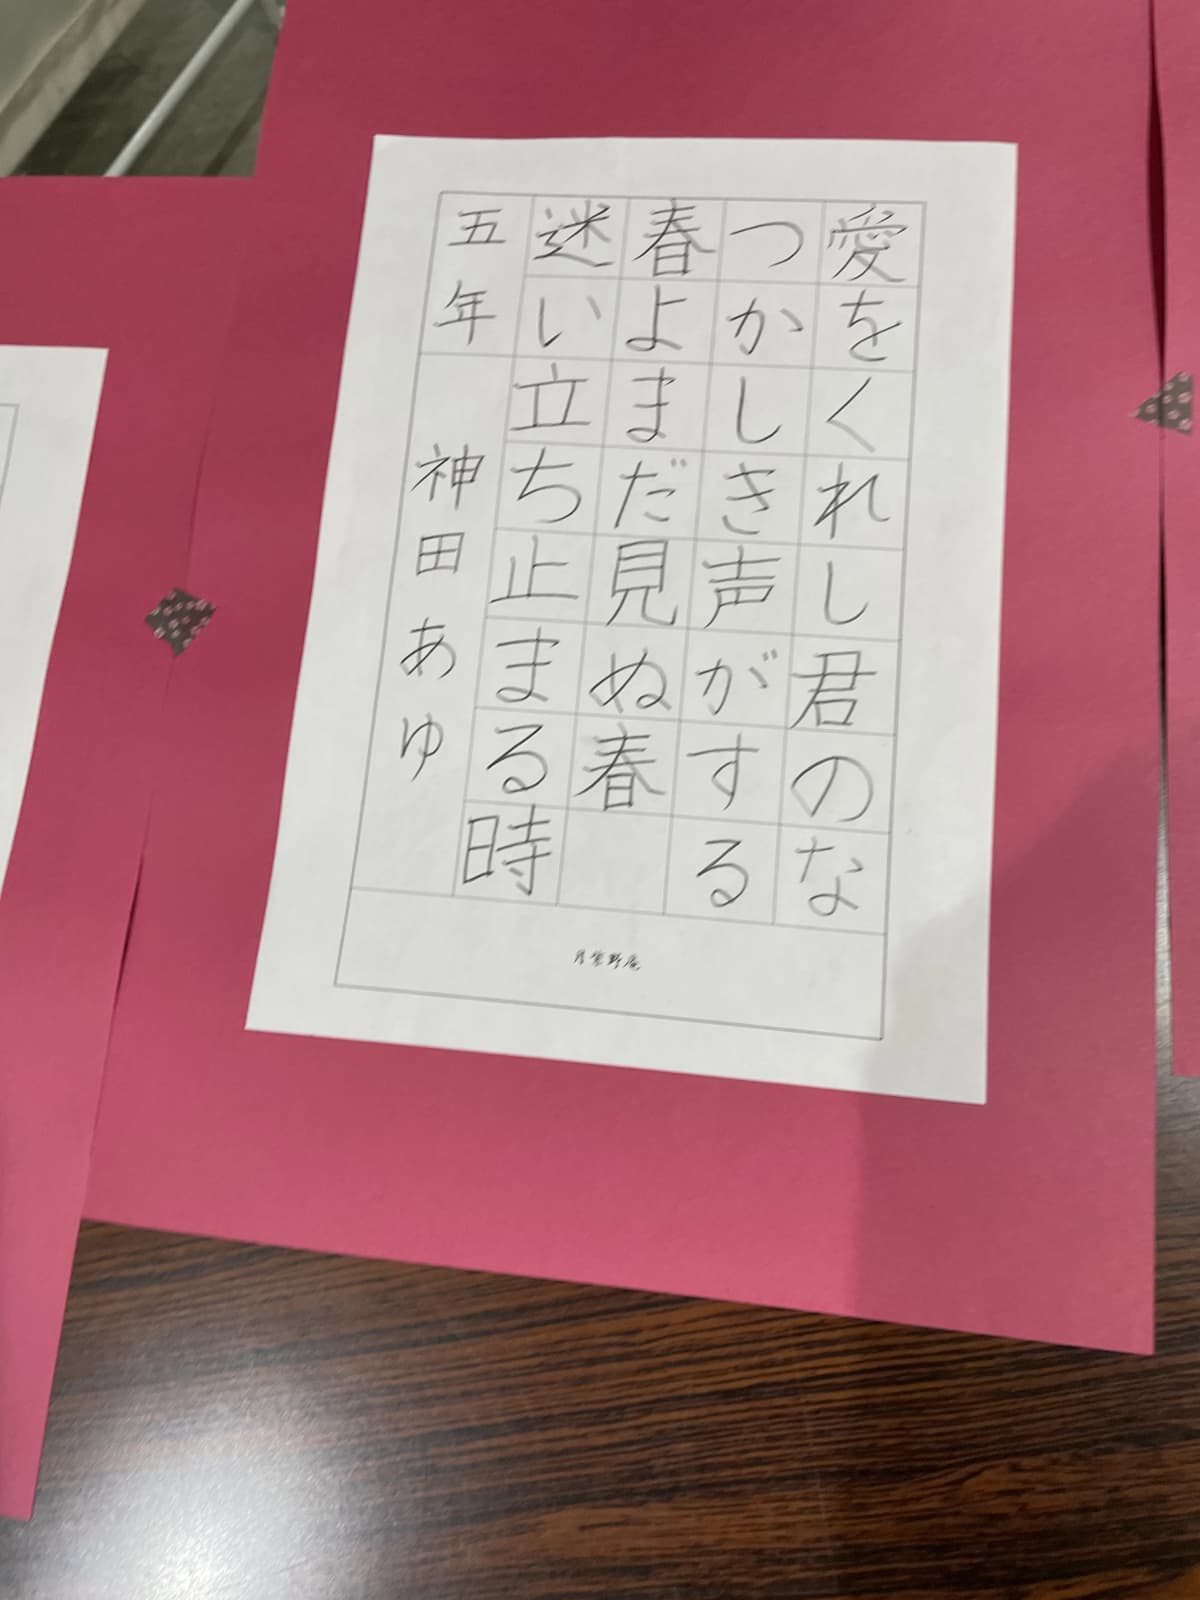 愛をくれし君のな
つかしき声がする
春よまだ見ぬ春
迷い立ち止まる時
五年 神田あゆ
月紫野庵